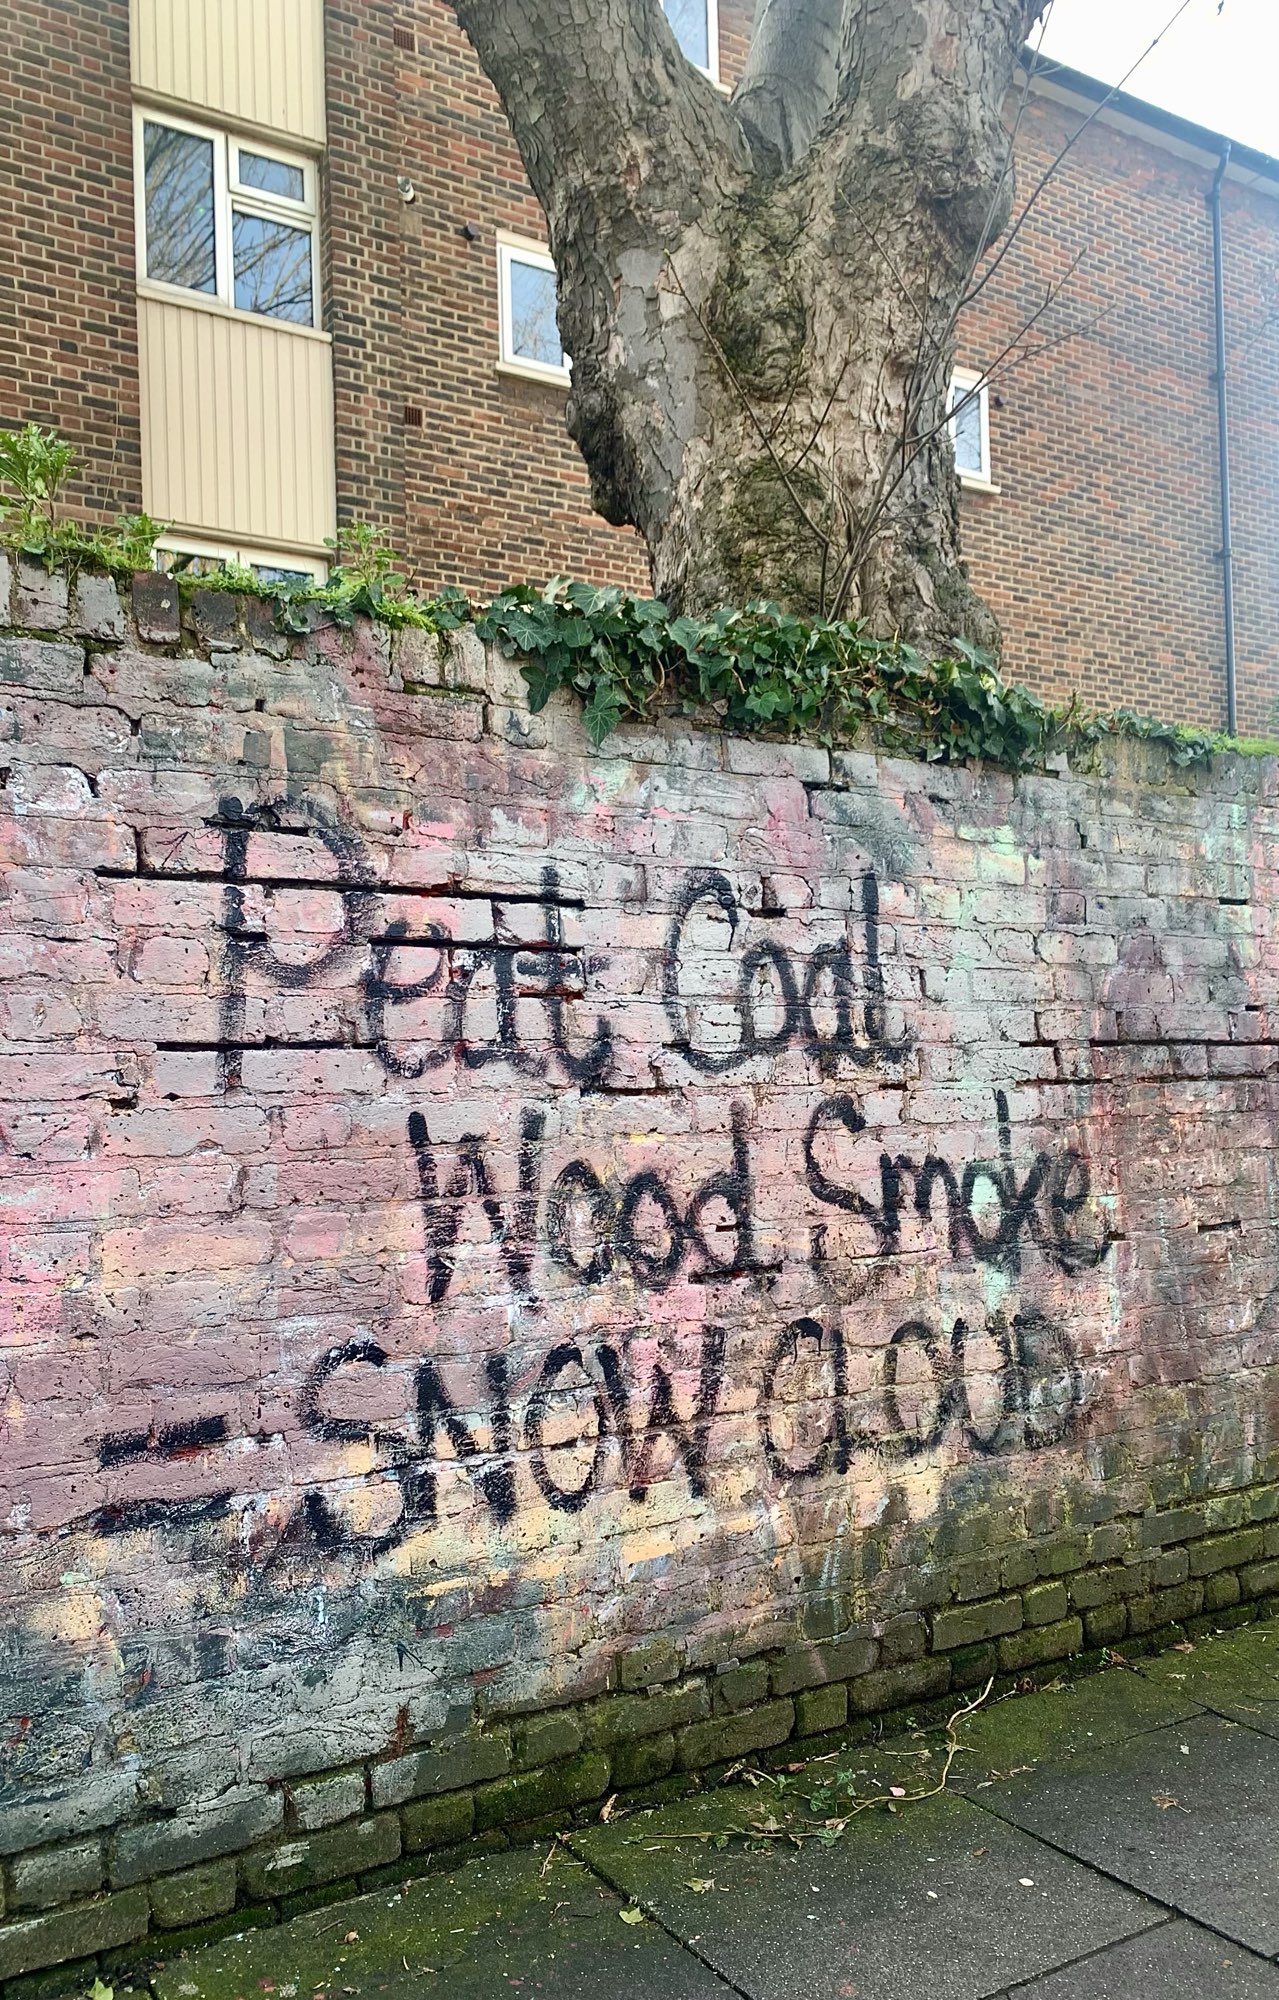 Peat Coal
Wood Smoke
= SNOW CLOUD